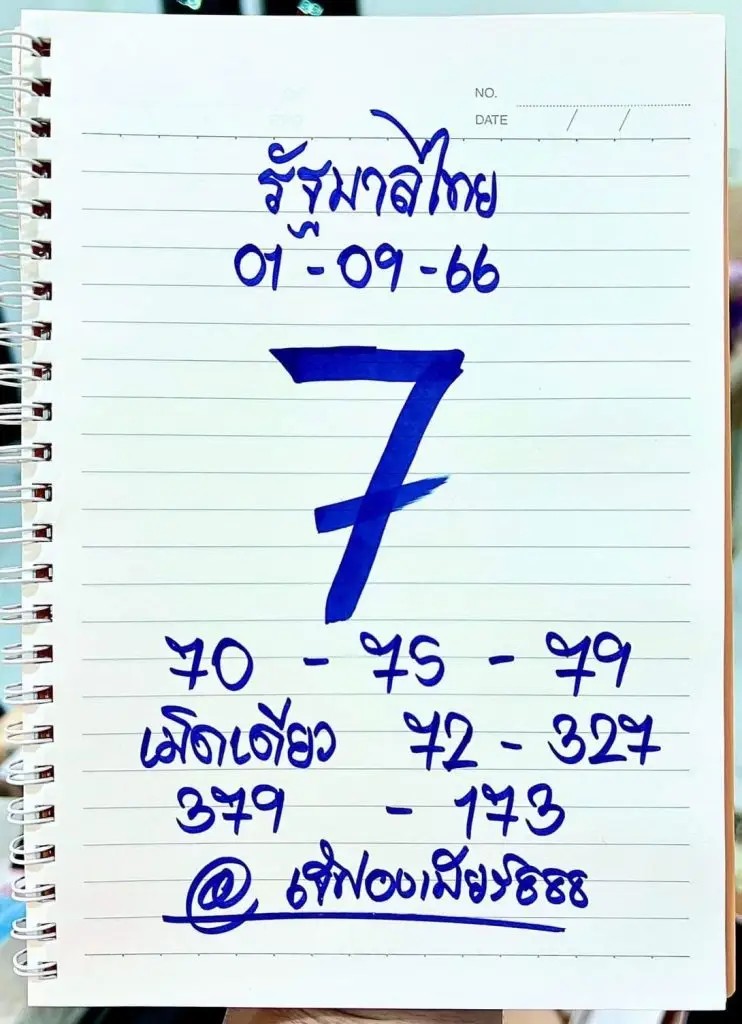 NO.
DATE / /
รัฐบาลไทย
01-09-66
7
70 - 75 - 79
เม็ดเดียว 72 - 327
379 - 173
@ 888